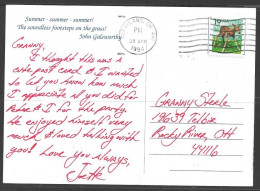 Summer - summer - summer!
The soundless footsteps on the grass!
John Galsworthy
Granny,
I thought this was a
cute post card & I wanted
to let you know how much
I appreciate all you did for
& I for the party.
He enjoyed himself very
much & loved talking with
you! Love you Always,
PM
1994
19
Granny Steele
19639 Telbir
Rocky River, OH
44116